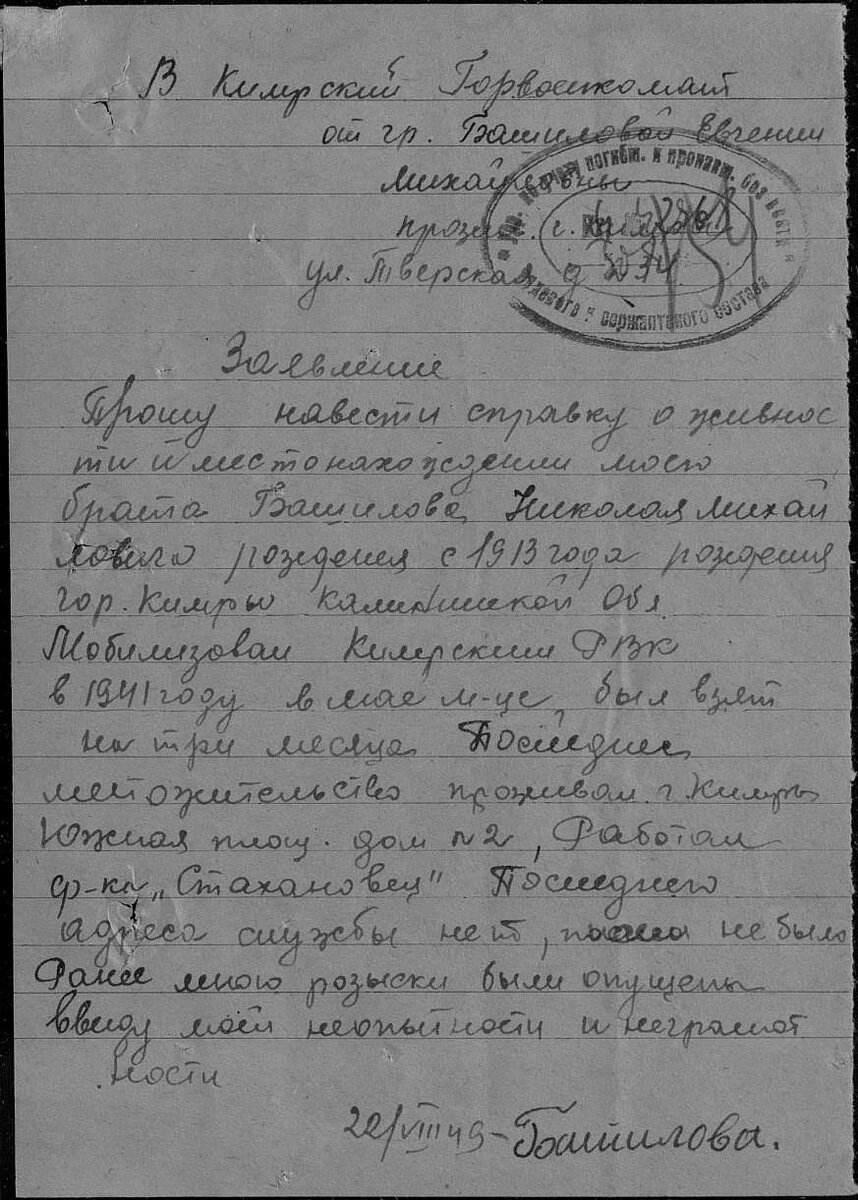 В Кимрский Горвоенкомат
от гр. Башиловой Евгении
Михайловны
прожив. г. Кимры
ул. Тверская д 34
Упр. по учету погибш. и пропавш. без вести
рядового и сержантского состава
Заявление
Прошу навести справку о живнос
ти и местонахождении моего
брата Башилова Николая Михай
ловича рождения с 1913 года рождения
гор. Кимры Калининской Обл
Мобилизован Кимрским РВК
в 1941 году в мае м-це, был взят
на три месяца Последнее
местожительство проживал г. Кимры
Южная площ. дом №2, Работал
ф-ка „Стахановец" Последнего
адреса службы нет, не было
Ранее мною розыски были опущены
ввиду моей неопытности и неграмот
ности
22/VIII 49 – Башилова.